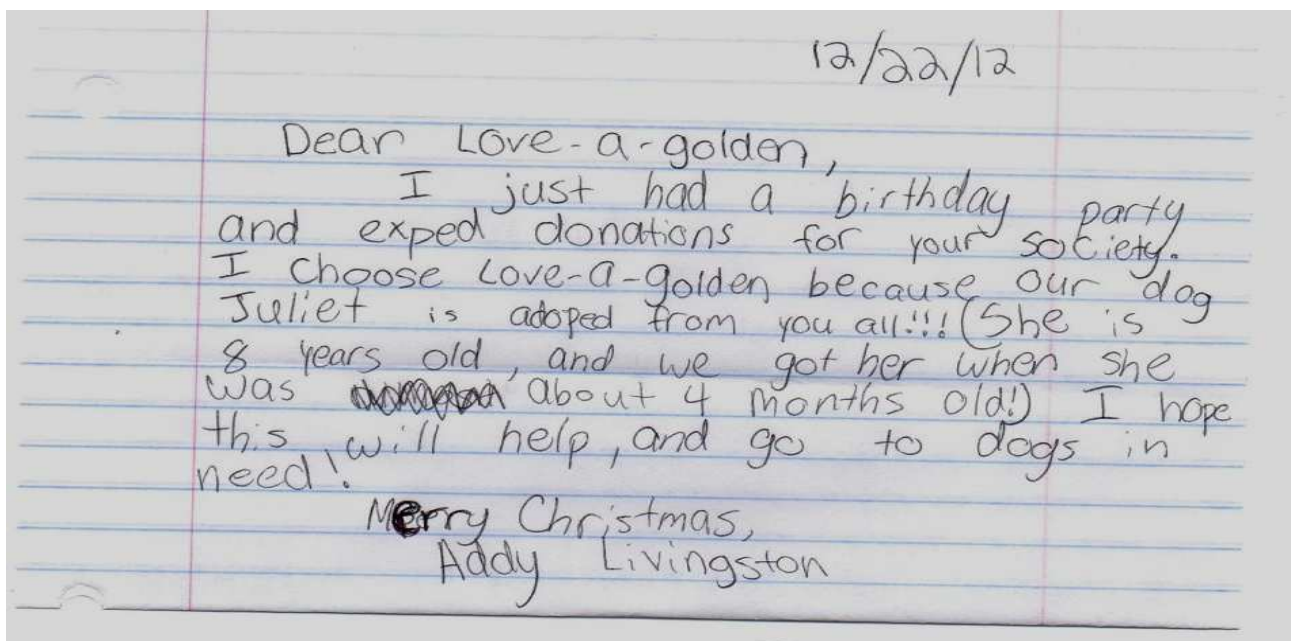 12/22/12
Dear Love-a-golden,
I just had a birthday party
and exped donations for your society.
I choose Love-a-golden because our dog
Juliet is adoped from you all!!! (She is
8 years old, and we got her when she
was about 4 months old!) I hope
this will help, and go to dogs in
need!
Merry Christmas,
Addy Livingston